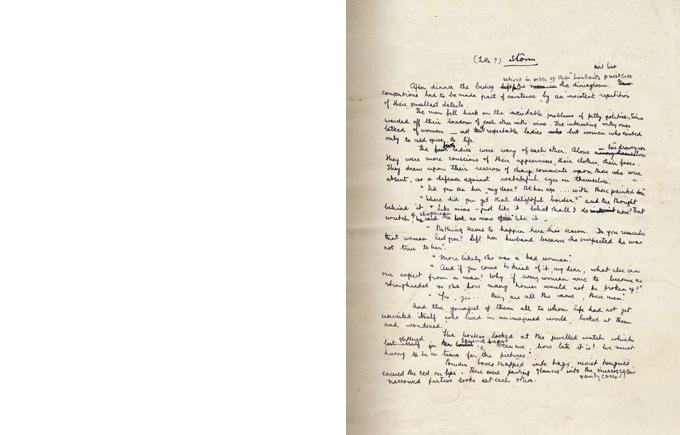 (Title?) Storm
civil list
retired in order of their husbands' precedence
After dinner the ladies left the diningroom.
conventions had to be made part of existence by an insistent repetition
of their smallest details.
The men fell back on the inevitable problems of petty politics. Some
warded off their boredom of each other with wine. The interesting ones
talked of women — not reputable ladies but women who existed
only to add spice to life.
The ladies were wary of each other. Alone
they were more conscious of their appearances, their clothes, their faces.
They drew upon their reserves of sharp comments upon those who were
absent, as a defence against watchful eyes on themselves.
"Did you see her, my dear? At her age ... with those painted
"Where did you get that delightful border?" and the thought
behind it "Like mine - just like it. What shall I do now? That
wretch of a shopkeeper said he had no more like it -
"Nothing seems to happen here this season. Do you remember
that woman last year? Left her husband because she suspected he was
not true to her".
"More likely she was a bad woman".
"And if you come to think of it, my dear, what else can
one expect from a man? Why if every woman were to become as
strongheaded as she how many homes would not be broken up?"
"Yes, yes ... they are all the same, these men".
And the youngest of them all to whom life had not yet
unveiled itself, who lived in an imagined world, looked at them
and wondered.
The hostess looked at the jewelled watch which
lost itself in her
"Dear me, how late it is! We must
hurry to be in time for the pictures".
Powder boxes snapped into bags, moist tongues
caressed the red on lips. There were parting glances into the mirrors
vanity cases
narrowed furtive looks at each other.